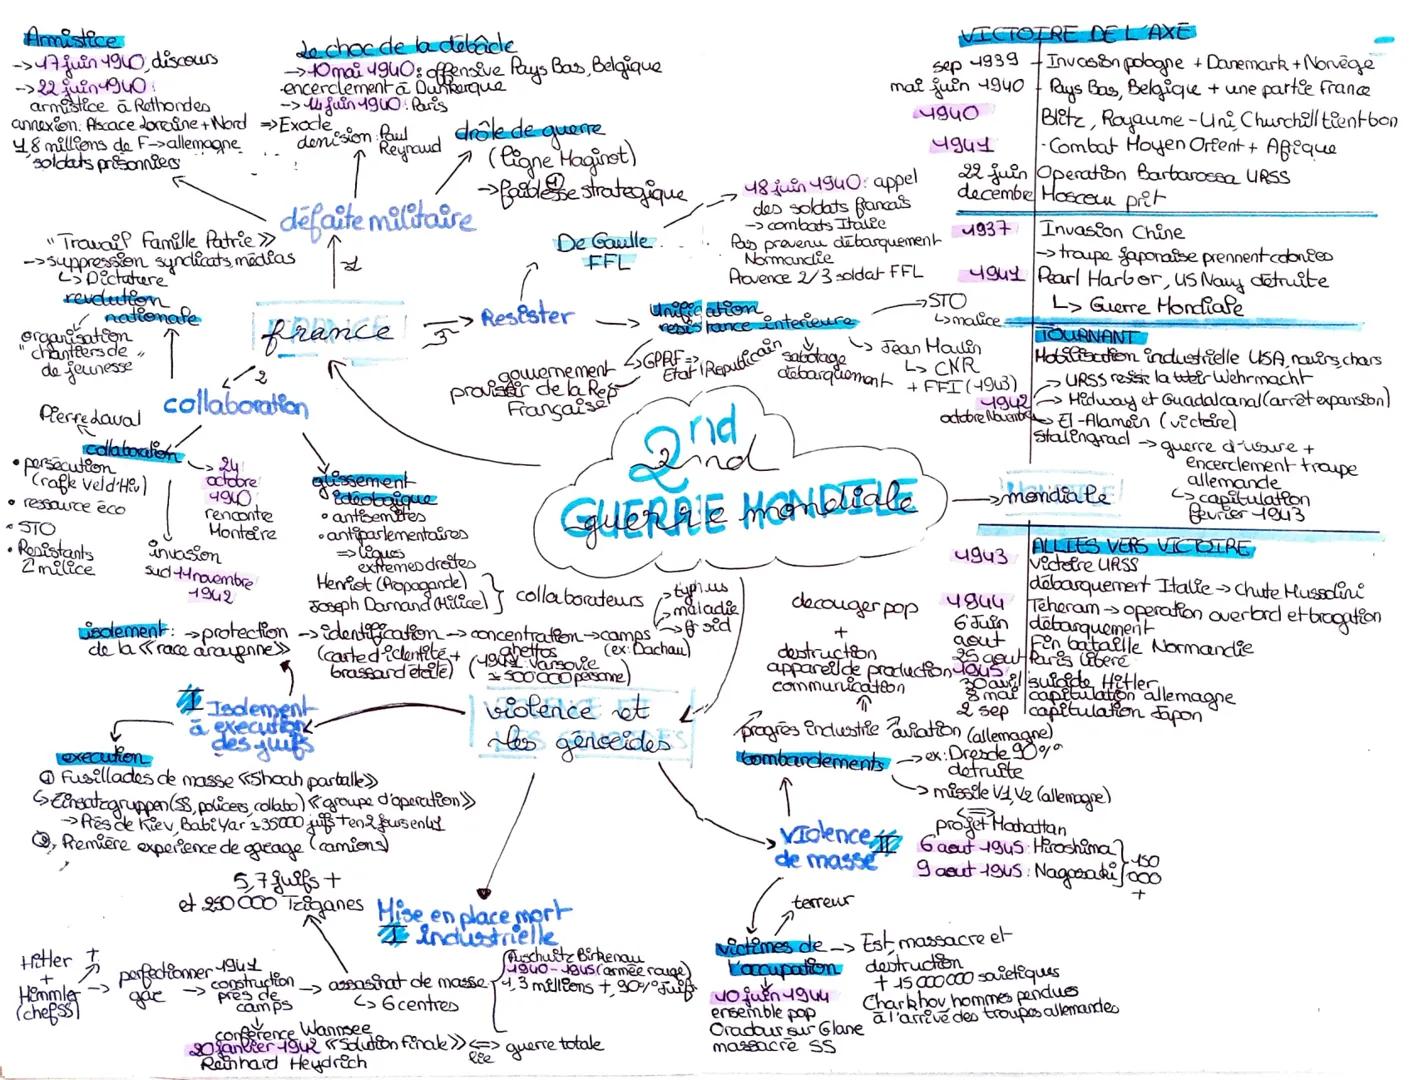 Armistice
-> 17 juin 1940, discours
-> 22 juin 1940:
armistice à Rethondes
annexion: Alsace Lorraine + Nord
1,8 millions de F -> allemagne
soldats prisonniers
Le choc de la débâcle
-> 10 mai 1940: offensive Pays Bas, Belgique
encerclement à Dunkerque
-> 14 juin 1940: Paris
=> Exode
démision: Paul
Reynaud
drôle de guerre
(ligne Maginot)
-> faiblesse strategique
défaite militaire
1
"Travail Famille Patrie >>
-> suppression syndicats, médias
↳ Dictature
revolution
nationale
organisation
"chantiers de
de jeunesse"
france
2
3
collaboration
Pierre Laval
collaboration
• persécution
(rafle Vel d'Hiv)
• ressource éco
• STO
• Resistants
≠ milice
-> 24
octobre
1940
rencontre
Montoire
invasion
sud 11 novembre
1942
glissement
idéologique
• antisémites
• antiparlementaires
=> ligues
extremes droites
Henriot (Propagande)
Joseph Darnand (Milice)
collaborateurs
Resister
De Gaulle
FFL
18 juin 1940: appel
des soldats francais
-> combats Italie
Pas prevenu débarquement
Normandie
Provence 2/3 soldat FFL
Unification
resistance interieure
-> STO
↳ malice
↳ Jean Moulin
↳ CNR
+ FFI (1943)
sabotage
débarquement
GPRF =>
Etat Republicain
gouvernement
provisoir de la Rep
Française
2nd
GUERRE MONDIALE
guerre mondiale
mondiale
VICTOIRE DE L'AXE
sep 1939 - Invasion pologne + Danemark + Norvège
mai juin 1940 - Pays Bas, Belgique + une partie France
1940 Blitz, Royaume-Uni, Churchill tient bon
1941 - Combat Moyen Orient + Afrique
22 juin Operation Barbarossa URSS
decembre Moscou prit
1937 Invasion Chine
-> troupe japonaise prennent colonies
1941 Pearl Harbor, US Navy détruite
↳ Guerre Mondiale
TOURNANT
Mobilisation industrielle USA, navires, chars
-> URSS resiste la Wehrmacht
1942 -> Midway et Guadalcanal (arrêt expansion)
octobre Novembre -> El-Alamein (victoire)
Stalingrad -> guerre d'usure +
encerclement troupe
allemande
↳ capitulation
février 1943
ALLIES VERS VICTOIRE
1943 Victoire URSS
débarquement Italie -> Chute Mussolini
1944 Teheram -> operation overlord et brogation
6 Juin débarquement
aout Fin bataille Normandie
25 aout Paris libéré
1945
30 avril suicide Hitler
8 mai capitulation allemagne
2 sep capitulation Japon
isolement: -> protection
de la << race arayenne >>
-> identification
(carte d'identité +
brassard étoile)
-> concentration
ghettos
(1941: Varsovie
≈ 500 000 personne)
-> camps
(ex: Dachau)
-> typhus
-> maladie
-> froid
violence et
les génocides
I Isolement
à execution
des juifs
execution
① Fusillades de masse << Shoah par balle >>
↳ Einsatzgruppen (SS, policiers, collabo) << groupe d'operation >>
-> Près de Kiev, Babi Yar ≥ 35000 juifs + en 2 jours en 41
②, Première experience de gazage (camions)
5,7 juifs +
et 250 000 Tziganes
Mise en place mort
I industrielle
Hitler
+
Himmler
(chef SS)
-> perfectionner
gaz
-> 1941
construction
près de
camps
-> assasinat de masse
↳ 6 centres
Auschwitz Birkenau
1940 - 1945 (armée rouge)
1,3 millions +, 90% Juifs
conférence Wannsee
20 janvier 1942 << Solution finale >> <=> guerre totale
lié
Reinhard Heydrich
decouger pop
+
destruction
appareil de production
communication
progrès industrie aviation (allemagne)
bombardements
-> ex: Dresde 90%
detruite
-> missile V1, V2 (allemagne)
projet Mahattan
6 aout 1945: Hiroshima
9 aout 1945: Nagasaki
150
000
+
violence II
de masse
terreur
victimes de
l'occupation
10 juin 1944
ensemble pop
Oradour sur Glane
massacre SS
-> Est, massacre et
destruction
+ 15 000 000 soviétiques
Charkhov, hommes pendues
à l'arrivé des troupes allemandes